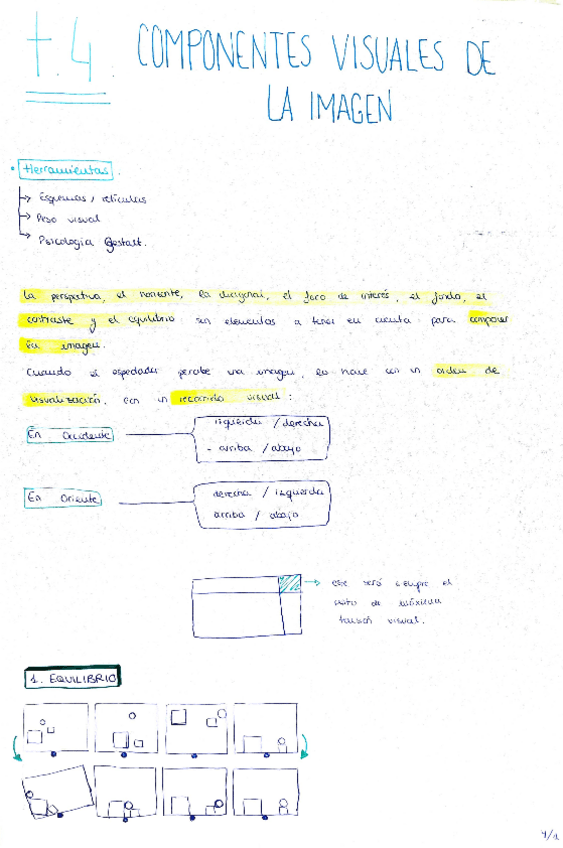 t.4 COMPONENTES VISUALES DE
LA IMAGEN
• Herramientas.
→ Esquemas / retículas
→ Peso visual
→ Psicología Gestalt.
La perspectiva, el horizonte, la diagonal, el foco de interés, el fondo, el
contraste y el equilibrio son elementos a tener en cuenta para componer
la imagen.
Cuando el espectador percibe una imagen, lo hace con un orden de
visualización, con un recorrido visual:
En Occidente
izquierda / derecha
- arriba / abajo
En Oriente
derecha / izquierda
arriba / abajo
→ este será siempre el
punto de máxima
tensión visual.
1. EQUILIBRIO
4/1